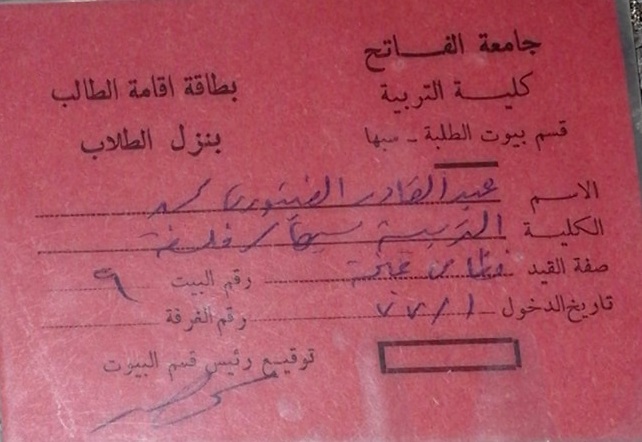 جامعة الفاتح
كلية التربية
قسم بيوت الطلبة - سبها
بطاقة اقامة الطالب
بنزل الطلاب
الاسم عبد القادر الفيتوري
الكلية التربية سبها / فلسفة
صفة القيد رقم البيت ٩
تاريخ الدخول ٧٧/١ رقم الغرفة
توقيع رئيس قسم البيوت